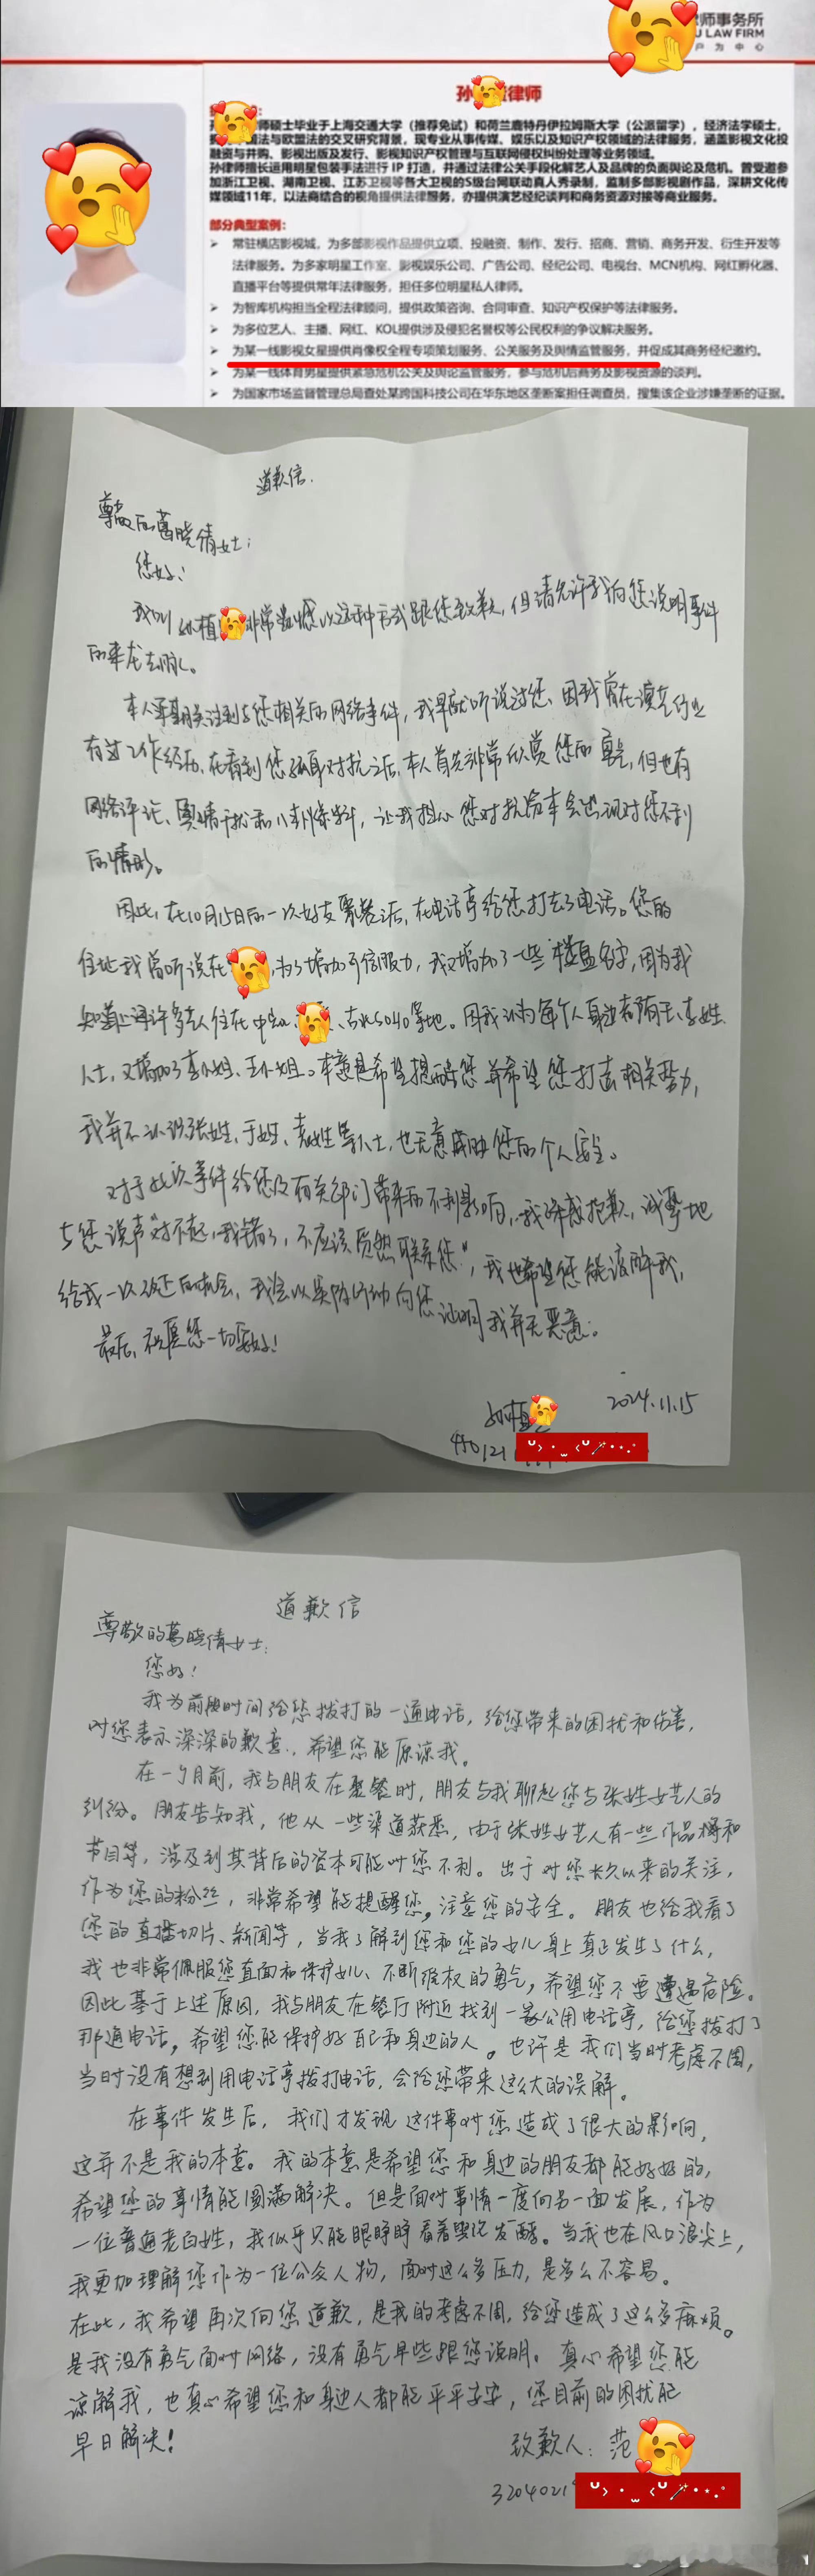 师事务所
U LAW FIRM
户 为 中 心
孙 律师
师硕士毕业于上海交通大学（推荐免试）和荷兰鹿特丹伊拉姆斯大学（公派留学），经济法学硕士，
法与欧盟法的交叉研究背景，现专业从事传媒、娱乐以及知识产权领域的法律服务，涵盖影视文化投
融资与并购、影视出版及发行、影视知识产权管理与互联网侵权纠纷处理等业务领域。
孙律师擅长运用明星包装手法进行 IP 打造，并通过法律公关手段化解艺人及品牌的负面舆论及危机。曾受邀参
加浙江卫视、湖南卫视、江苏卫视等各大卫视的S级台网联动真人秀录制，监制多部影视剧作品，深耕文化传
媒领域11年，以法商结合的视角提供法律服务，亦提供演艺经纪谈判和商务资源对接等商业服务。
部分典型案例：
常驻横店影视城，为多部影视作品提供立项、投融资、制作、发行、招商、营销、商务开发、衍生开发等
法律服务。为多家明星工作室、影视娱乐公司、广告公司、经纪公司、电视台、MCN机构、网红孵化器、
直播平台等提供常年法律服务，担任多位明星私人律师。
为智库机构担当全程法律顾问，提供政策咨询、合同审查、知识产权保护等法律服务。
为多位艺人、主播、网红、KOL提供涉及侵犯名誉权等公民权利的争议解决服务。
为某一线影视女星提供肖像权全程专项策划服务、公关服务及舆情监管服务，并促成其商务经纪邀约。
为某一线体育男星提供紧急危机公关及舆论监管服务，参与危机后商务及影视资源的谈判。
为国家市场监督管理总局查处某跨国科技公司在华东地区垄断案担任调查员，搜集该企业涉嫌垄断的证据。
道歉信.
尊敬的葛晓倩女士：
您好！
我叫孙植 非常遗憾以这种方式跟您致歉，但请允许我向您说明事件
的来龙去脉。
本人早期关注到与您相关的网络事件，我早就听说过您、因我曾在演艺行业
有过工作经历、在看到您孤身对抗之后，本人首先非常欣赏您的勇气，但也有
网络评论、舆情干扰和八卦爆料，让我担心您对抗资本会出现对您不利
的情形。
因此，在10月15日的一次好友聚餐之后，在电话亭给您打去了电话。您的
住址我曾听说在 ，为了增加可信服力，我又增加了一些楼盘名字，因为我
知道上海许多艺人住在中 、古北SOHO等地。因我认为每个人身边都有王、李姓
人士，又增加了李小姐、王小姐。本意是希望提醒您并希望您打击相关势力，
我并不认识张姓、于姓、袁姓等人士，也无意威胁您的个人安全。
对于此次事件给您及有关部门带来的不利影响，我深感抱歉，诚挚地
与您说声“对不起，我错了，不应该贸然联系您”，我也希望您能谅解我，
给我一次改正的机会，我会以实际行动向您证明我并无恶意。
最后，祝愿您一切安好！
孙植 2024.11.15
道歉信
尊敬的葛晓倩女士：
您好！
我为前段时间给您拨打的一通电话，给您带来的困扰和伤害，
对您表示深深的歉意，希望您能原谅我。
在一个月前，我与朋友在聚餐时，朋友与我聊起您与张姓女艺人的
纠纷。朋友告知我，他从一些渠道获悉，由于张姓女艺人有一些作品和
节目等，涉及到其背后的资本可能对您不利。出于对您长久以来的关注，
作为您的粉丝，非常希望能提醒您，注意您的安全。朋友也给我看了
您的直播切片、新闻等，当我了解到您和您的女儿身上真正发生了什么，
我也非常佩服您直面和保护女儿、不断维权的勇气，希望您不要遭遇危险。
因此基于上述原因，我与朋友在餐厅附近找到一家公用电话亭，给您拨打了
那通电话，希望您能保护好自己和身边的人。也许是我们当时考虑不周，
当时没有想到用电话亭拨打电话，会给您带来这么大的误解。
在事件发生后，我们才发现这件事对您造成了很大的影响，
这并不是我的本意。我的本意是希望您和身边的朋友都能好好的，
希望您的事情能圆满解决。但是面对事情一度向另一面发展，作为
一位普通老百姓，我似乎只能眼睁睁看着舆论发酵。当我也在风口浪尖上，
我更加理解您作为一位公众人物，面对这么多压力，是多么不容易。
在此，我希望再次向您道歉，是我的考虑不周，给您造成了这么多麻烦。
是我没有勇气面对网络，没有勇气早些跟您说明。真心希望您能
谅解我，也真心希望您和身边人都能平平安安，您目前的困扰能
早日解决！
致歉人：范
3204021